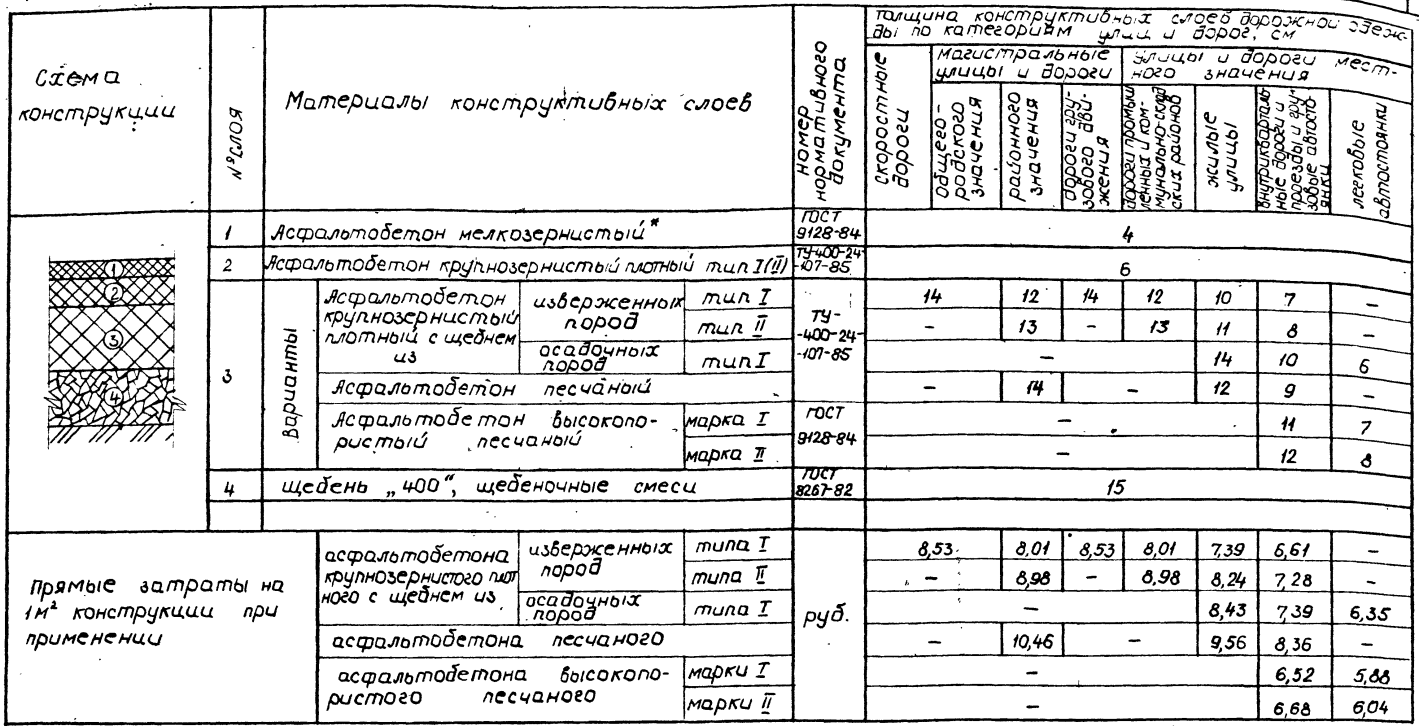 Схема
конструкции
№ слоя
Материалы конструктивных слоев
номер
нормативного
документа
толщина конструктивных слоев дорожной одеж-
ды по категориям улиц и дорог, см
скоростные
дороги
магистральные
улицы и дороги
улицы и дороги мест-
ного значения
общего-
родского
значения
районного
значения
дороги гру-
зового дви-
жения
дороги промыш
ленных и ком-
мунально-склад
ских районов
жилые
улицы
внутрикварталь
ные дороги и
проезды и гру-
зовые автосто-
янки
легковые
автостоянки
1 Асфальтобетон мелкозернистый* ГОСТ 9128-84 4
2 Асфальтобетон крупнозернистый плотный тип I(II) ТУ-400-24-107-85 6
3 Варианты
Асфальтобетон
крупнозернистый
плотный с щебнем
из
изверженных
пород
тип I 14 12 14 12 10 7 –
тип II – 13 – 13 11 8 –
осадочных
пород
тип I – 14 10 6
ТУ-
-400-24-
-107-85
Асфальтобетон песчаный – 14 – 12 9 –
Асфальтобетон высокопо-
ристый песчаный
марка I – 11 7
марка II – 12 8
ГОСТ
9128-84
4 щебень „400“, щебеночные смеси ГОСТ 8267-82 15
1
2
3
4
Прямые затраты на
1м² конструкции при
применении
асфальтобетона
крупнозернистого плот
ного с щебнем из
изверженных
пород
типа I 8,53 8,01 8,53 8,01 7,39 6,61 –
типа II – 8,98 – 8,98 8,24 7,28 –
осадочных
пород
типа I – 8,43 7,39 6,35
руб.
асфальтобетона песчаного – 10,46 – 9,56 8,36 –
асфальтобетона высокопо-
ристого песчаного
марки I – 6,52 5,88
марки II – 6,68 6,04